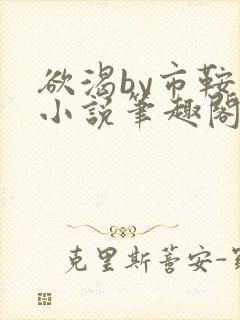 欲渴by市鞍
小説筆趣閣
克里斯蒼安-